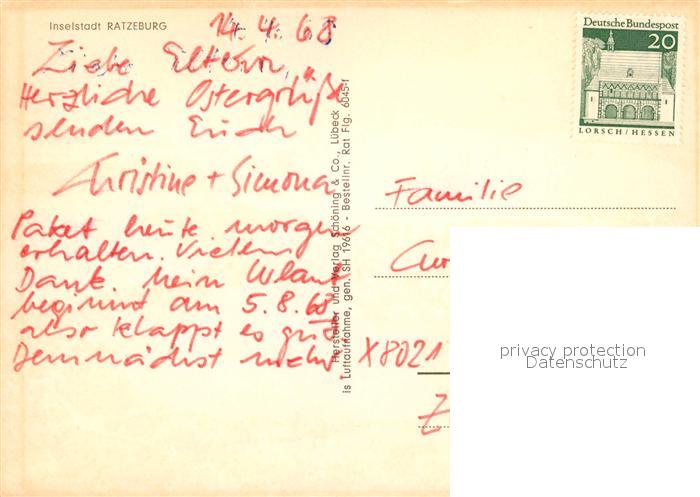 Inselstadt RATZEBURG
14.4.68
Liebe Eltern,
Herzliche Ostergrüße
senden Euch
Christine + Simona
Paket heute morgen
erhalten. Vielen
Dank. Mein Urlaub
beginnt am 5.8.68
also klappt es gut
Demnächst mehr.
Hersteller und Verlag Schöning & Co., Lübeck
is Luftaufnahme, gen. SH 19616 - Bestellnr. Rat Flg. 6045-f
Deutsche Bundespost
20
LORSCH/HESSEN
Familie
X8021
privacy protection
Datenschutz